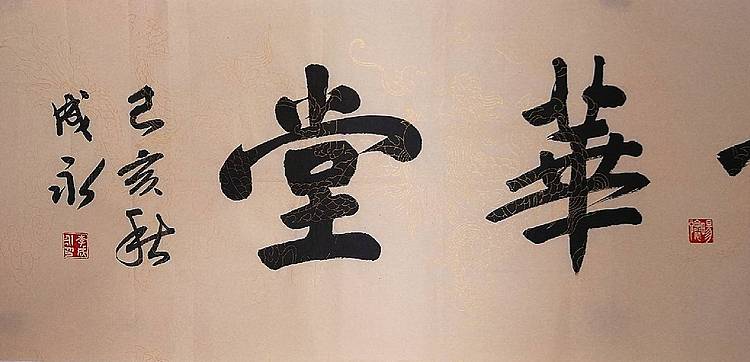 華堂
己亥秋
成永